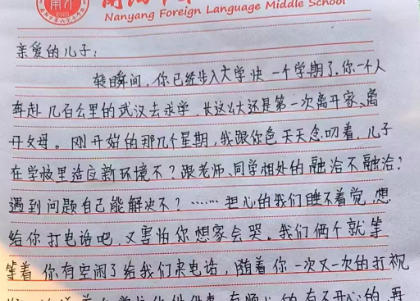 Nanyang Foreign Language Middle School
亲爱的儿子:
转瞬间,你已经步入大学快一个学期了,你一个人
奔赴几百公里的武汉去求学,长这么大还是第一次离开家、离
开父母。刚开始的那几个星期,我跟你爸天天念叨着,儿子
在学校里适应新环境不?跟老师、同学相处的融洽不融洽?
遇到问题自己能解决不?……担心的我们睡不着觉,想
给你打电话吧,又害怕你想家会哭。我们俩个就等
等着你有空闲了给我们来电话,随着你一次又一次的打视